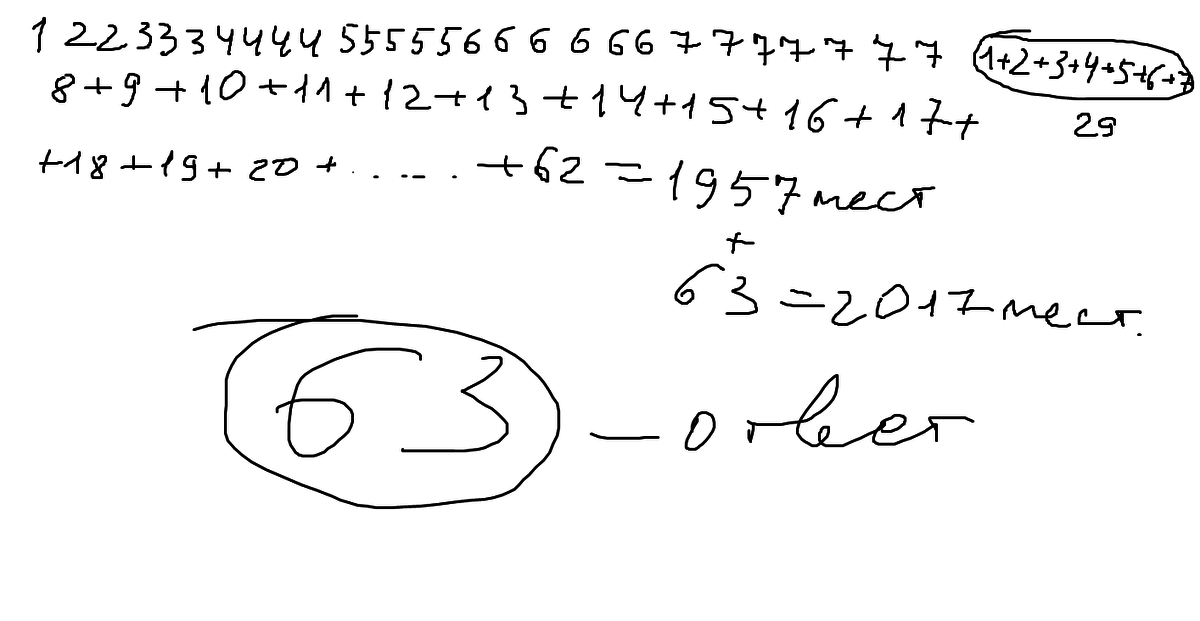 1 22 333 4444 55555 6 6 6 6 6 6 7 7 7 7 7 7 7
1+2+3+4+5+6+7
29
8+9+10+11+12+13+14+15+16+17+
+18+19+20+.....+62=1957 мест
+
63=2017 мест.
63 – ответ